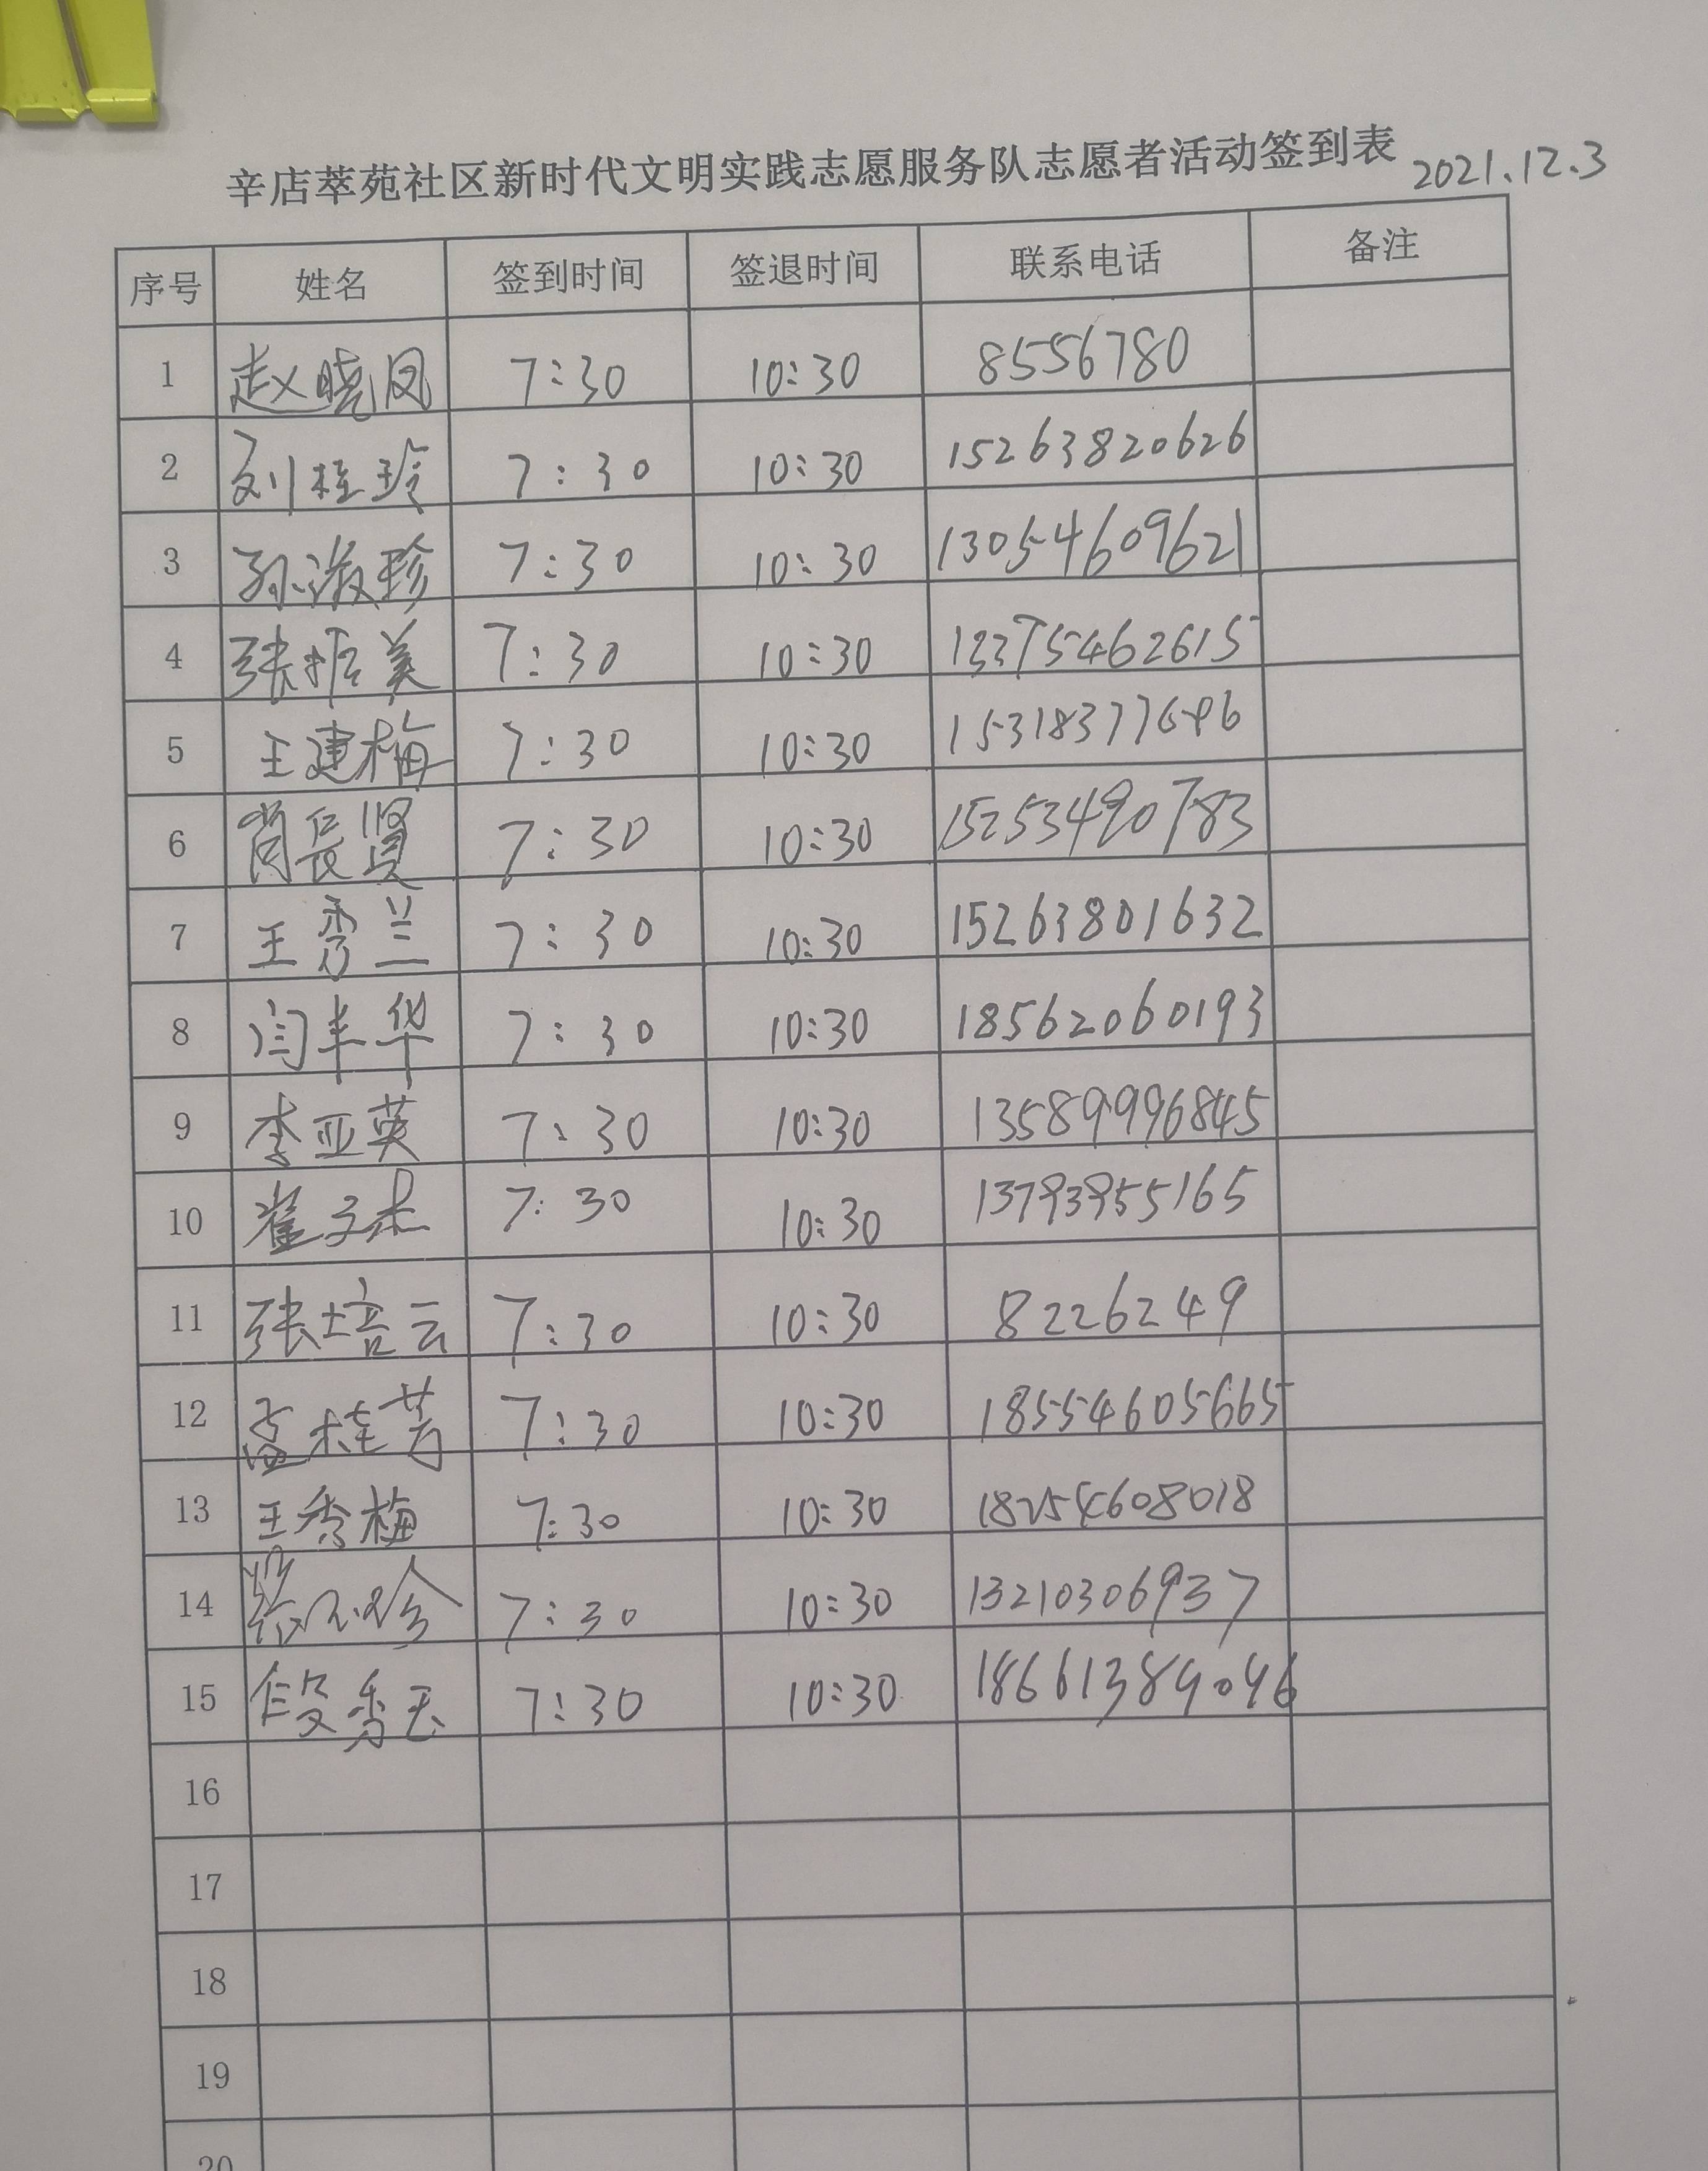 辛店萃苑社区新时代文明实践志愿服务队志愿者活动签到表 2021.12.3
序号 姓名 签到时间 签退时间 联系电话 备注
1 赵晓凤 7:30 10:30 8556780
2 刘桂玲 7:30 10:30 15263820626
3 孙淑珍 7:30 10:30 13054609621
4 张振美 7:30 10:30 13375462615
5 王建梅 7:30 10:30
6 肖长贤 7:30 10:30 15253490783
7 王秀兰 7:30 10:30 15263801632
8 闫丰华 7:30 10:30 18562060193
9 李亚英 7:30 10:30 13589996845
10 崔子杰 7:30 10:30 13793955165
11 张培云 7:30 10:30 8226249
12 孟桂芳 7:30 10:30 18554605665
13 王秀梅 7:30 10:30 18254608018
14 7:30 10:30 13210306937
15 段秀玉 7:30 10:30 18661389046
16
17
18
19
20